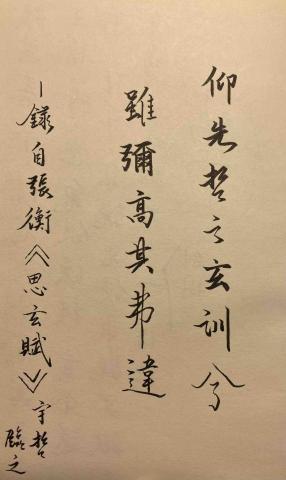 仰先哲之玄訓兮
雖彌高其弗違
—錄自張衡《思玄賦》守哲
臨之